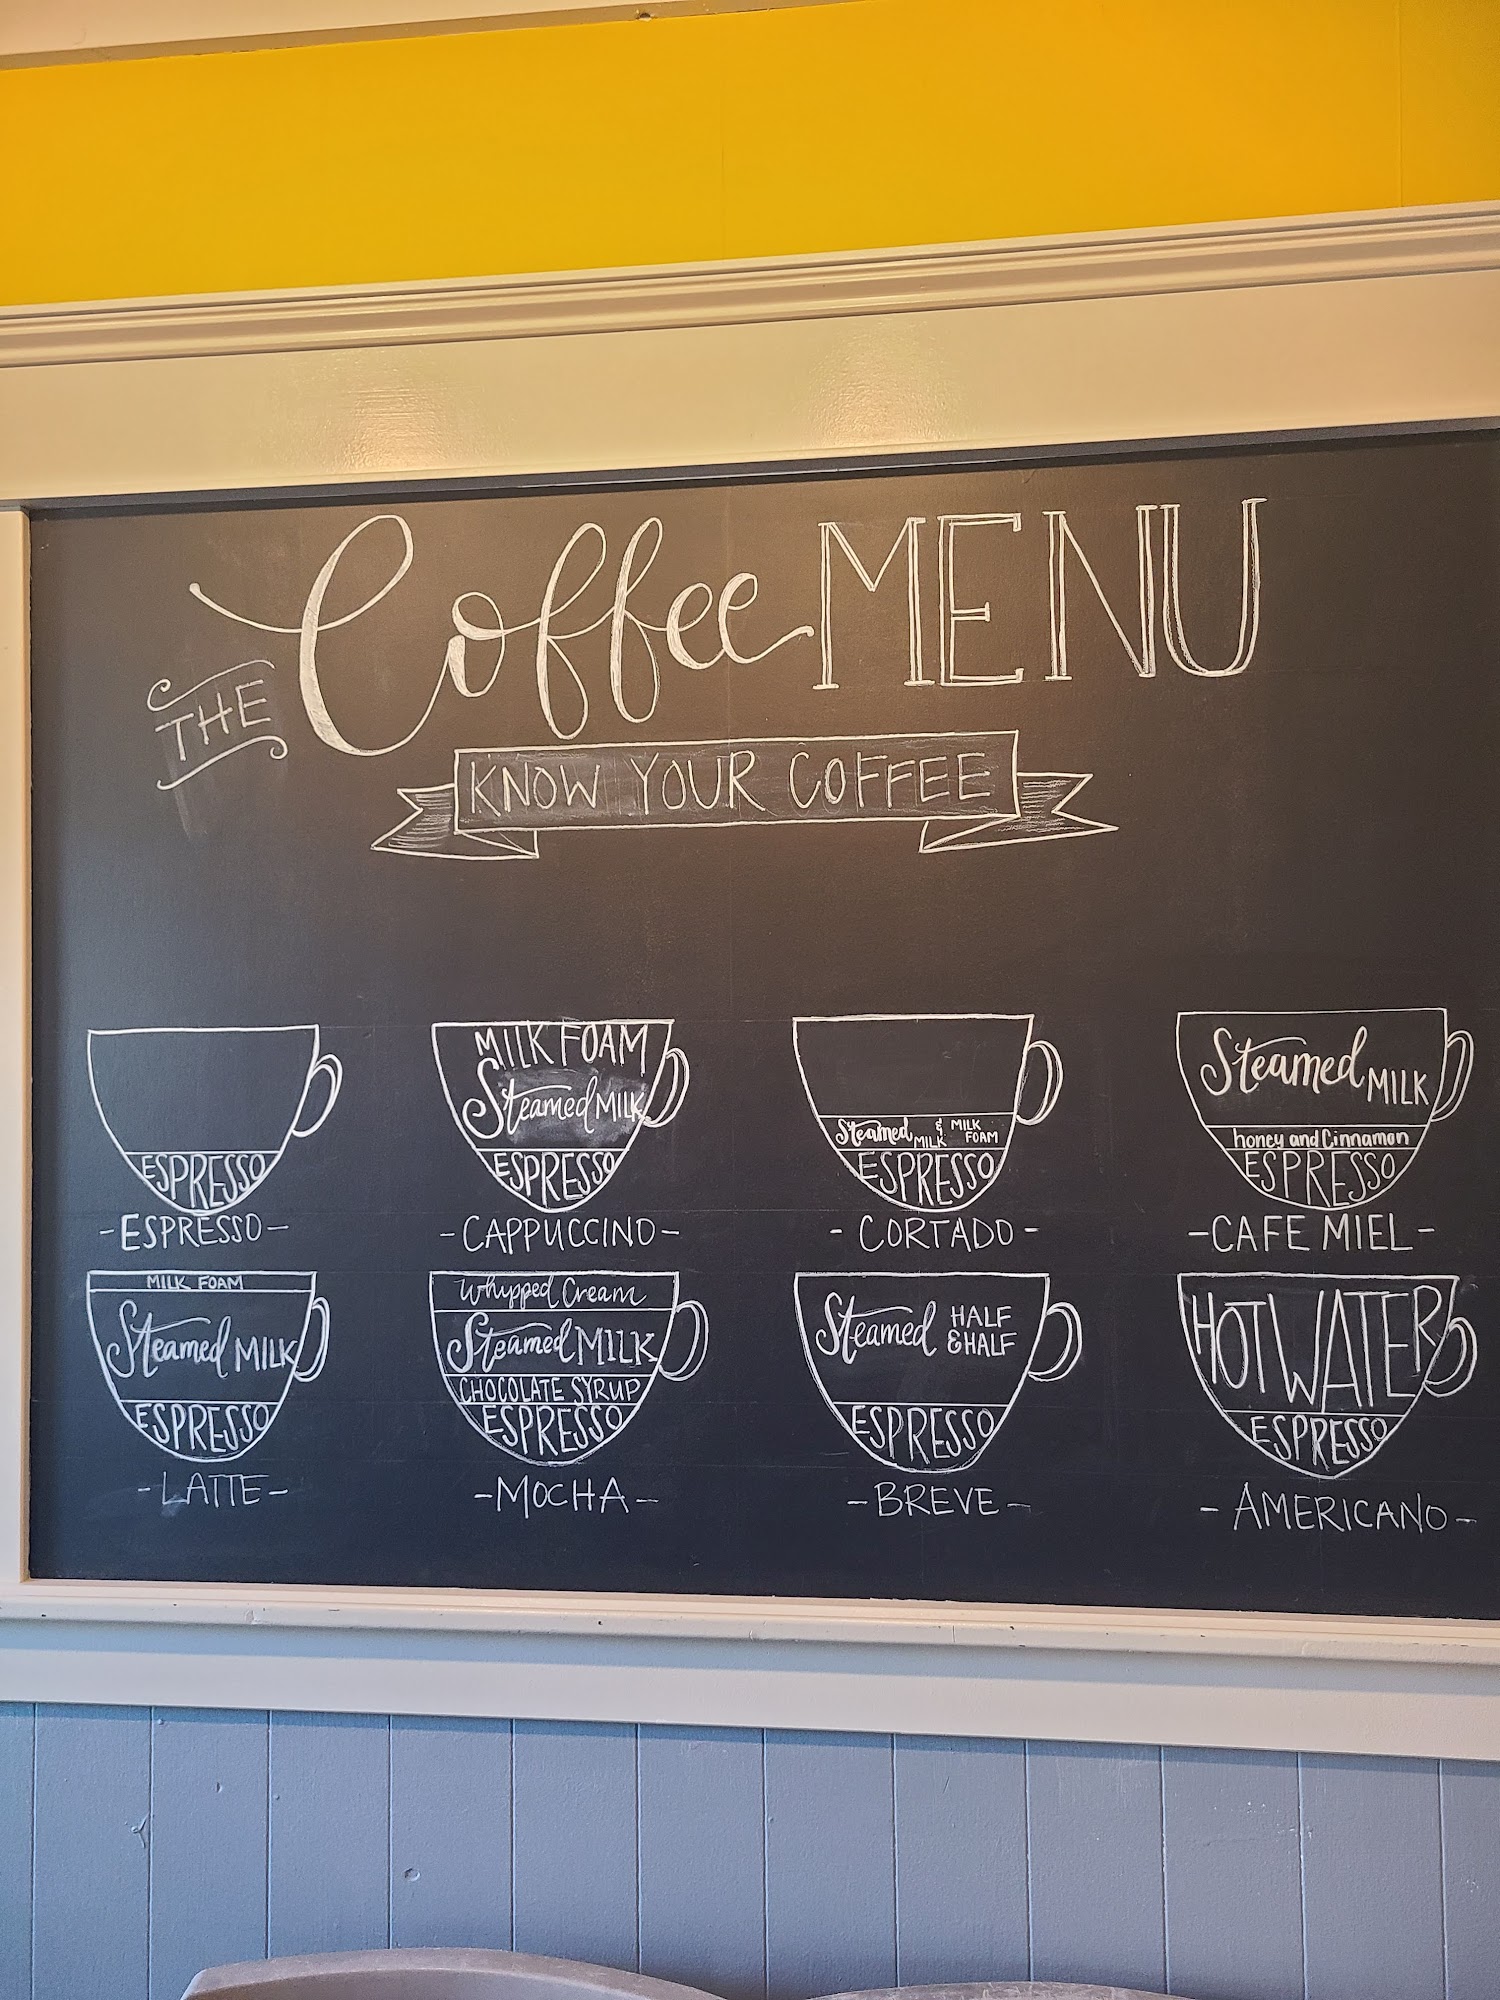 THE Coffee MENU
KNOW YOUR COFFEE
ESPRESSO
-ESPRESSO-
MILK FOAM
Steamed MILK
ESPRESSO
-CAPPUCCINO-
Steamed MILK & MILK FOAM
ESPRESSO
-CORTADO-
Steamed MILK
honey and Cinnamon
ESPRESSO
-CAFE MIEL-
MILK FOAM
Steamed MILK
ESPRESSO
-LATTE-
Whipped Cream
Steamed MILK
CHOCOLATE SYRUP
ESPRESSO
-MOCHA-
Steamed HALF
& HALF
ESPRESSO
-BREVE-
HOT WATER
ESPRESSO
-AMERICANO-